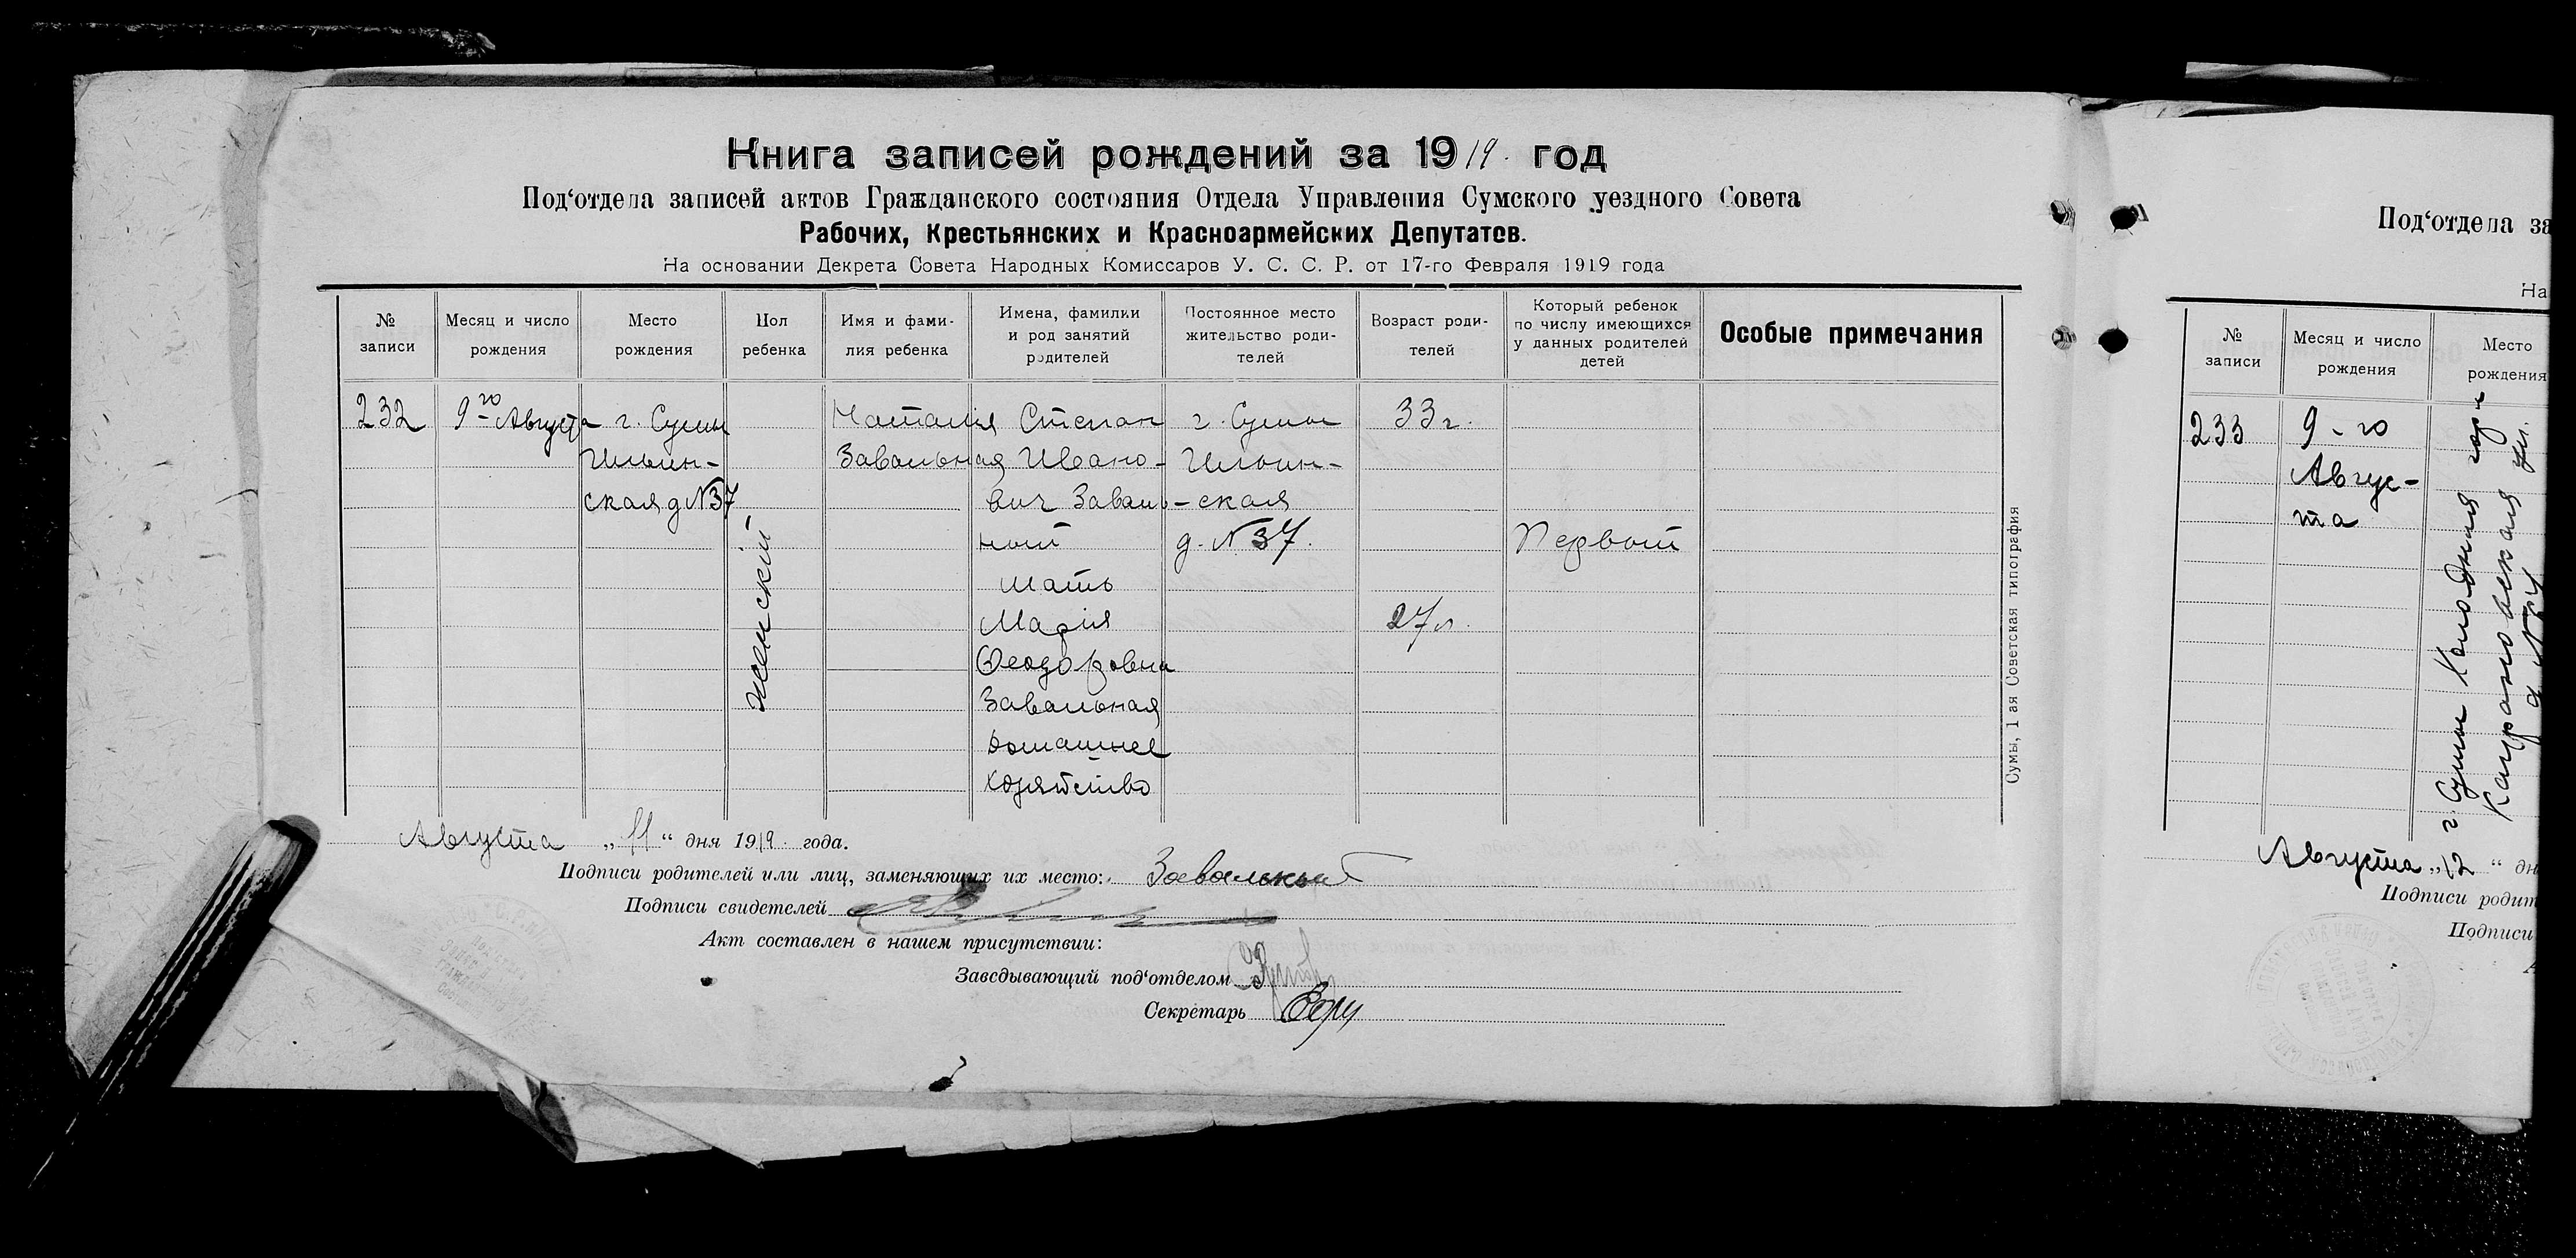 Книга записей рождений за 1919. год
Под‘отдела записей актов Гражданского состояния Отдела Управления Сумского уездного Совета
Рабочих, Крестьянских и Красноармейских Депутатов.
На основании Декрета Совета Народных Комиссаров У. С. С. Р. от 17-го Февраля 1919 года
№ записи
Месяц и число рождения
Место рождения
Пол ребенка
Имя и фами-
лия ребенка
Имена, фамилии
и род занятий
родителей
Постоянное место
жительство роди-
телей
Возраст роди-
телей
Который ребенок
по числу имеющихся
у данных родителей
детей
Особые примечания
232
9-го Августа
г. Сумы
Ильин-
ская д N37
женскiй
Наталiя
Завальная
Степан
Ивано-
вич Заваль-
ный
Мать
Марiя
Феодоровна
Завальная
домашнее
хозяйство
г. Сумы
Ильин-
ская
д. N 37.
33 г.
27 л.
Первый
Сумы, 1 ая Советская типография
Августа „11“ дня 1919. года.
Подписи родителей или лиц, заменяющих их место: Завальный
Подписи свидетелей
Акт составлен в нашем присутствии:
Заведывающий под‘отделом
Секретарь
Под‘отдела за
На
№ записи
Месяц и число рождения
Место рождения
233
9-го
Авгус-
та
г. Сумы
ул.
Августа „12“ дн
Подписи родит
Подписи
А